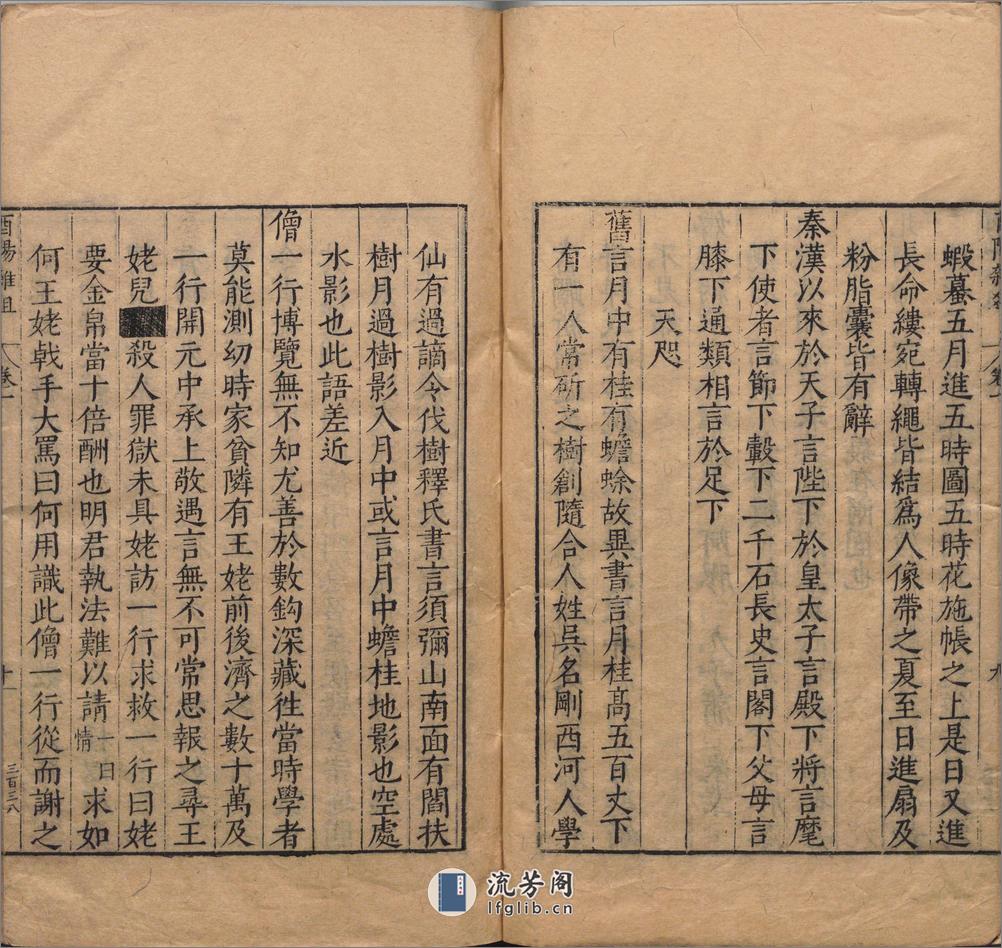 蝦蟇五月進五時圖五時花施帳之上是日又進
長命縷宛轉繩皆結爲人像帶之夏至日進扇及
粉脂囊皆有辭
秦漢以來於天子言陛下於皇太子言殿下將言麾
下使者言節下轂下二千石長史言閣下父母言
膝下通類相言於足下
天咫
舊言月中有桂有蟾蜍故異書言月桂高五百丈下
有一人常斫之樹創隨合人姓吳名剛西河人學
仙有過謫令伐樹釋氏書言須彌山南面有閻扶
樹月過樹影入月中或言月中蟾桂地影也空處
水影也此語差近
僧一行博覽無不知尤善於數鈎深藏徃當時學者
莫能測幼時家貧隣有王姥前後濟之數十萬及
一行開元中承上敬遇言無不可常思報之尋王
姥兒殺人罪獄未具姥訪一行求救一行曰姥
要金帛當十倍酬也明君執法難以請一曰情求如
何王姥戟手大罵曰何用識此僧一行從而謝之
酉陽雜俎 卷一 十一 三百三六
流芳阁
lfglib.cn